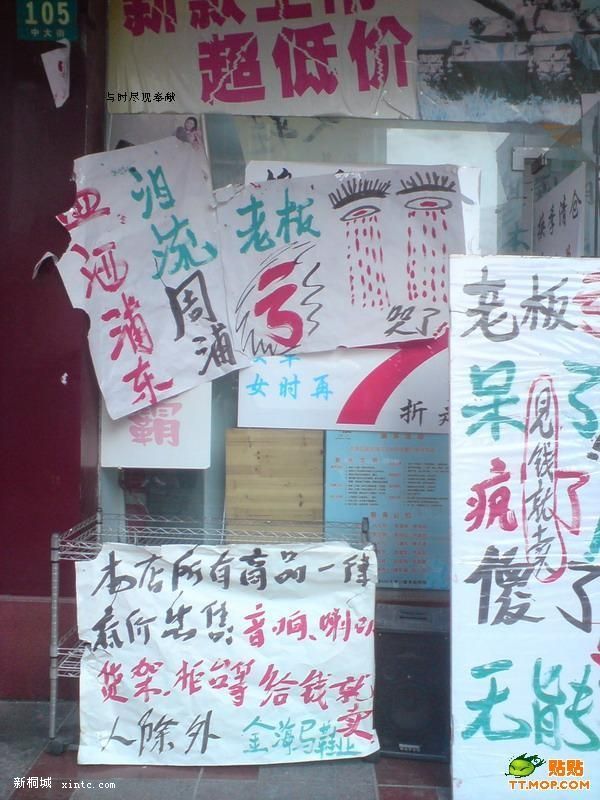 105
中大街
新款上市
超低价
与时尽现奉献
泪流
周浦
血洒浦东
老板
亏
哭了
换季清仓
女时再
折
霸
老板
呆了
疯了
傻了
无能
见钱就卖
本店所有商品一律
底价出售,音响、喇叭
货架、柜台等给钱就卖
人除外 金海马鞋业
新桐城 xintc.com
贴贴
TT.MOP.COM